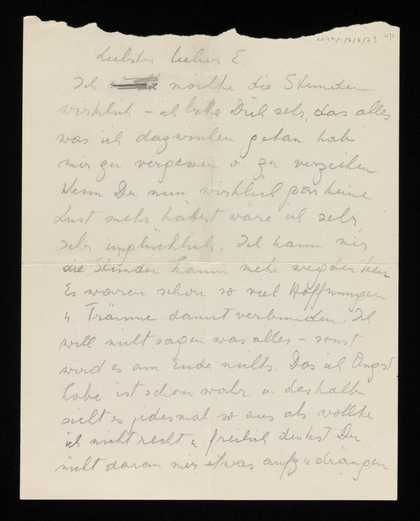 Liebster lieber E.
Ich möchte die Stunden
wirklich – ich bitte Dich sehr, das alles
was ich dazwischen getan hab
mir zu vergessen u zu verzeihen
Wenn Du nun wirklich gar keine
Lust mehr hättest wäre ich sehr,
sehr unglücklich. Ich kann mir
die Stunden kaum mehr wegdenken
Es waren schon so viel Hoffnungen
u Träume damit verbunden. Ich
will nicht sagen was alles – sonst
wird es am Ende nichts. Das ich Angst
habe ist schon wahr u. deshalb
sieht es jedesmal so aus als wollte
ich nicht recht u freilich denkst Du
nicht daran mir etwas aufzudrängen